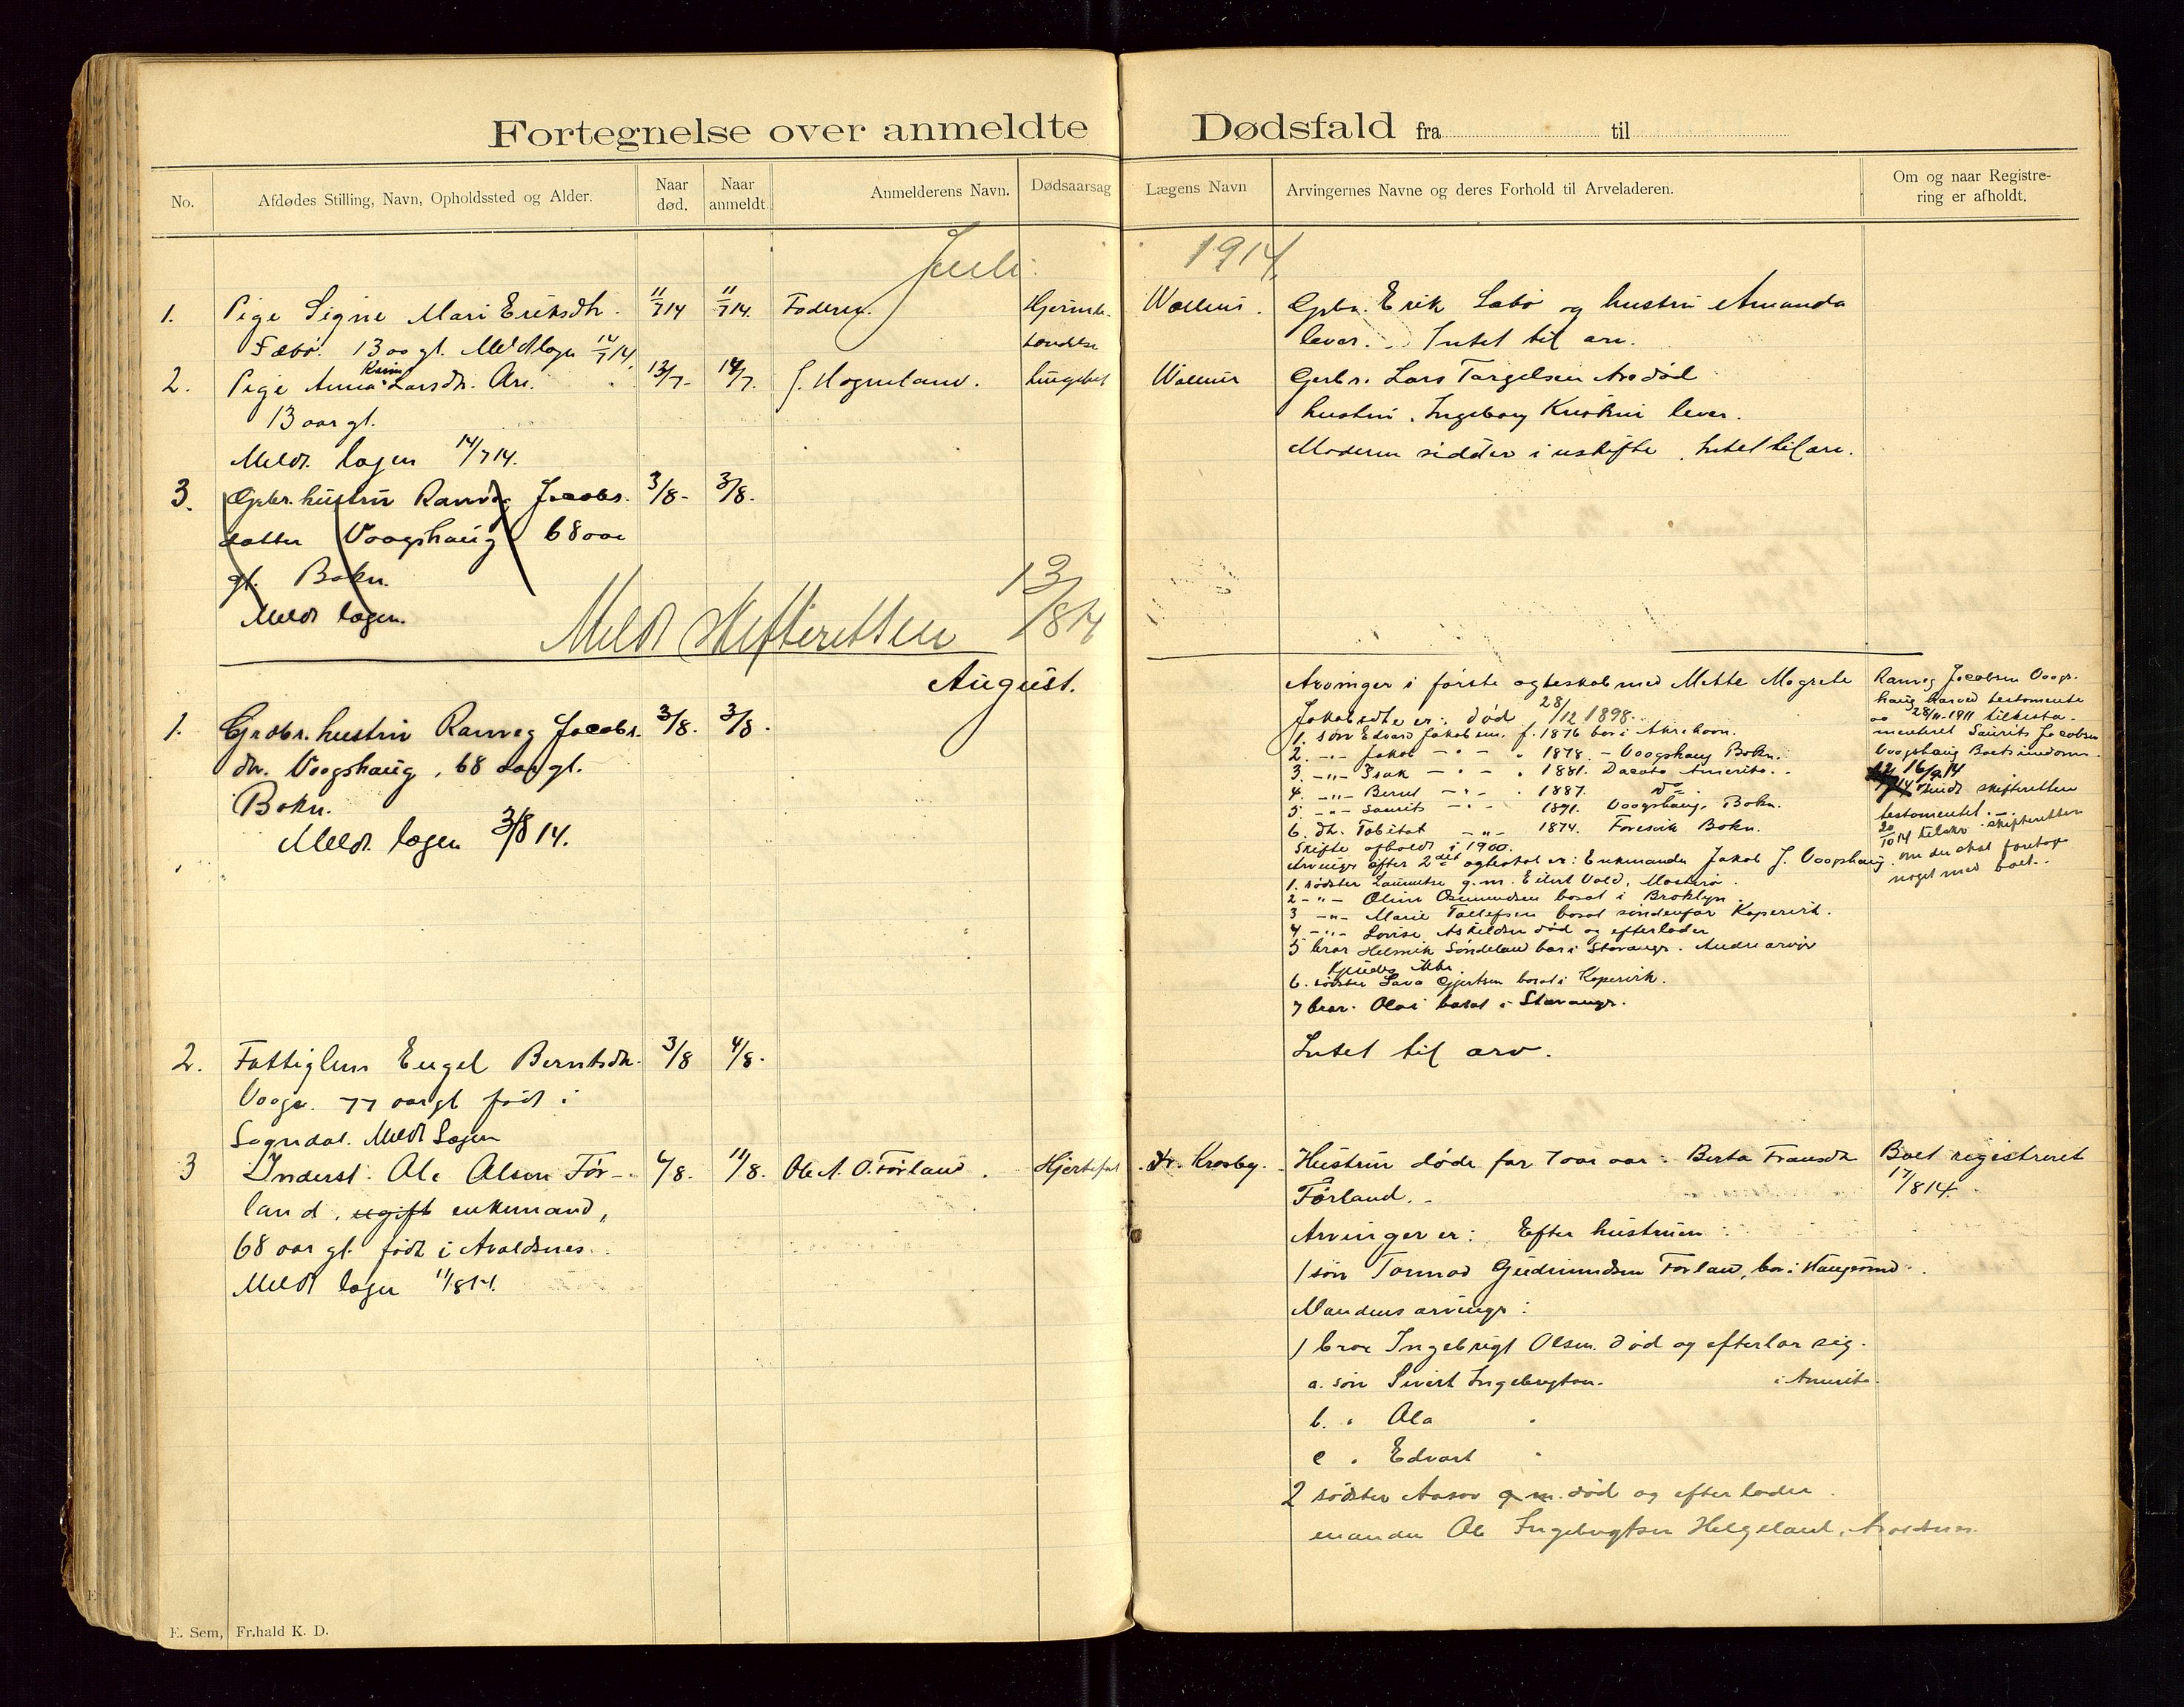 Fortegnelse over anmeldte Dødsfald fra til
No.
Afdødes Stilling, Navn, Opholdssted og Alder.
Naar død.
Naar anmeldt.
Anmelderens Navn.
Dødsaarsag
Lægens Navn
Arvingernes Navne og deres Forhold til Arveladeren.
Om og naar Registre-
ring er afholdt.
Juli 1914.
1. Pige Signe Mari Eriksdtr. 11/7 14 11/7 14. Faderen.
Sæbø. 13 aar gl. Meldt lægen 14/7 14.
Gbr. Erik Sæbø og hustru Amanda
lever. Intet til arv.
2. Pige Anna Larsdtr. 13/7 - 14/7. J. Hogneland.
13 aar gl.
Meldt lægen 14/7 14.
Gbr. Lars Torgelsen død
hustru Ingeborg lever.
Moderen sidder i uskifte. Intet til arv.
3. Gbr. hustru Ranveg Jacobs- 3/8 - 3/8.
datter Vaagshaug 68 aar
gl. Bokn.
Meldt lægen.
Meldt skifteretten 13/8 14
August.
1. Grdbr. hustru Ranveg Jacobs- 3/8. 3/8.
dtr. Vaagshaug, 68 aar gl.
Bokn.
Meldt lægen 3/8 14.
Arvinger i første ægteskab med Mette Magrete
Jakobsdtr er: død 28/12 1898.
1. søn Edvard Jakobsen f. 1876 bor i Akrehavn.
2. -"- Jakob -"- " 1878. - Vaagshaug Bokn.
3. -"- Isak -"- " 1881. Dacota Amerika.
4. -"- Bernt -"- " 1887. do
5. -"- Laurits -"- 1891. Vaagshaug, Bokn.
6. dtr. Tabitat -"- 1874. Føresvik Bokn.
Skifte afholdt i 1900.
Arvinger efter 2det ægteskab er: Enkemanden Jakob J. Vaagshaug.
1. søster g. m. Eilert Vold, Mosterø.
2 -"- Oline Osmundsen bosat i Broklyn.
3 -"- Marie bosat søndenfor Kopervik.
4 -"- Lovise Askildsen død og efterlader
5 bror Helmik bor i Stavanger. Andre arvinger
kjendes ikke.
6. søster Lava Gjertsen bosat i Kopervik.
7 bror Olai bosat i Stavanger.
Ranveg Jacobsen Vaags-
haug har ved testamente
28/11-1911 tilkesta-
menteret Laurits Jacobsen
Vaagshaug Boets
16/9 14
sendt skifteretten
testamentet.
20/10 14 tilskr. skifteretten
om der skal foretages
noget med boet.
2. Fattiglem Engel Berntsdtr. 3/8 4/8.
Vaage. 77 aar gl. født i
Sogndal. Meldt Lægen
Intet til arv.
3 Inderst. Ole Olsen Før- 6/8. 11/8. Ole A. O. Førland. Hjertefeil Dr. Krosby.
land, ugift enkemand,
68 aar gl. født i Avaldsnes.
Meldt lægen 11/8 14.
Hustrun døde for 7 aar: Berta Fransdtr
Førland.
Arvinger er: Efter hustruen:
1 søn Tormod Gudmundsen Førland, bor i Haugesund.
Mandens arvinger:
1 bror Ingebrigt Olsen død og efterlar sig.
a. søn Sivert Ingebrigtsen. i Amerika.
b. " Ola "
c " Edvart "
2 søster g. m. død og efterlader
manden Ole Ingebrigtsen Helgeland,
Boet registreret
17/8 14.
E. Sem, Fr.hald K. D.